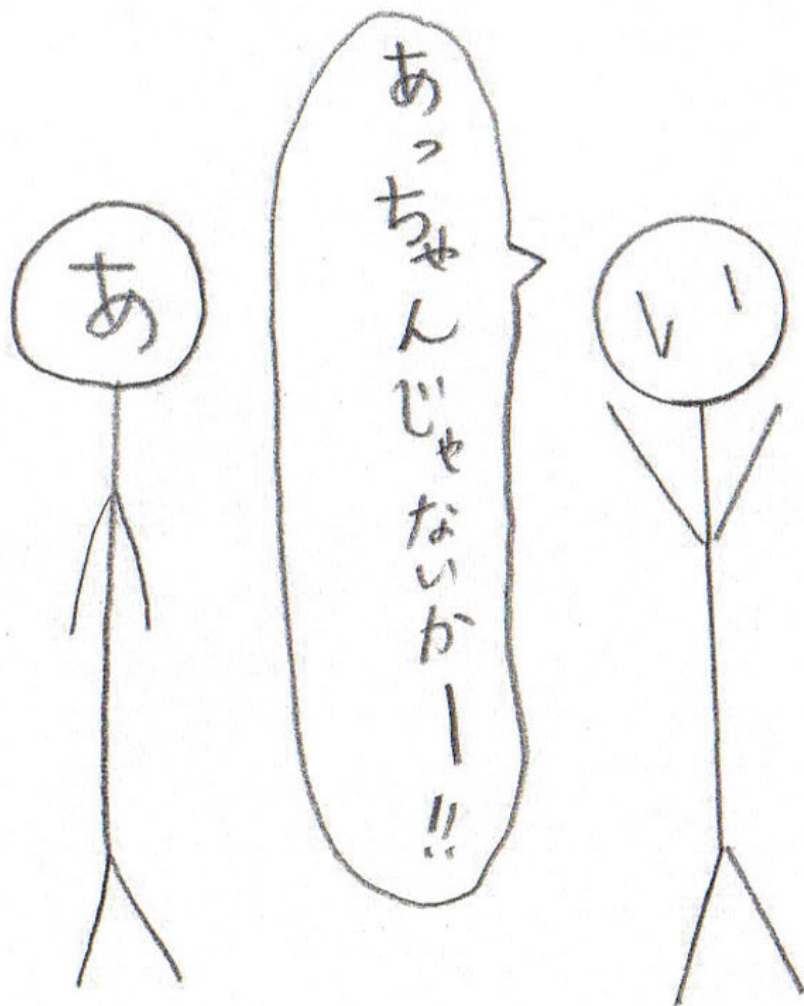 い
あっちゃんじゃないかー!!
あ